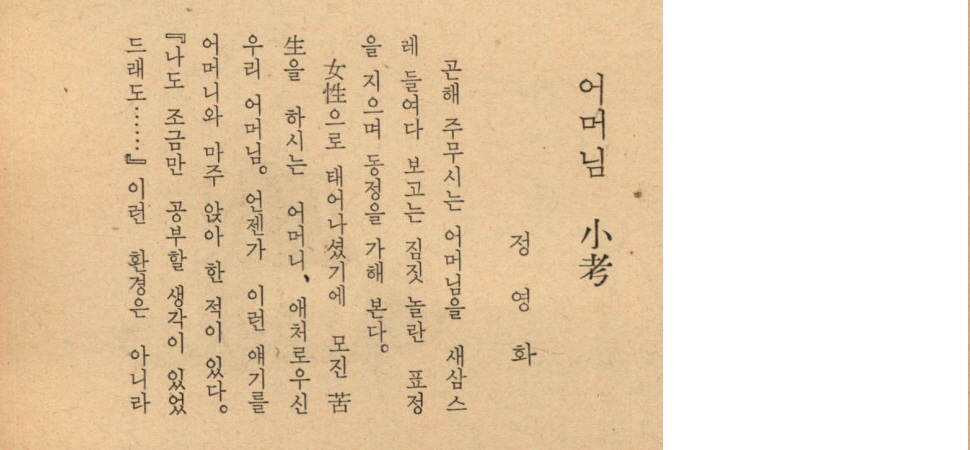 어머님 小考
정영화
곤해 주무시는 어머님을 새삼스
레 들여다 보고는 짐짓 놀란 표정
을 지으며 동정을 가해 본다。
女性으로 태어나셨기에 모진 苦
生을 하시는 어머니、애처로우신
우리 어머님。언젠가 이런 얘기를
어머니와 마주 앉아 한 적이 있다。
『나도 조금만 공부할 생각이 있었
드래도……』이런 환경은 아니라